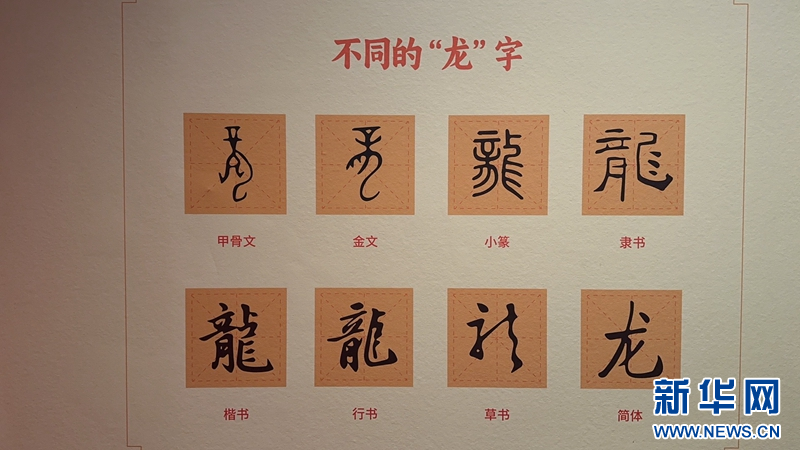 不同的“龙”字
甲骨文
金文
小篆
隶书
龍
龍
龍
龍
龙
楷书
行书
草书
简体
新华网
WWW.NEWS.CN